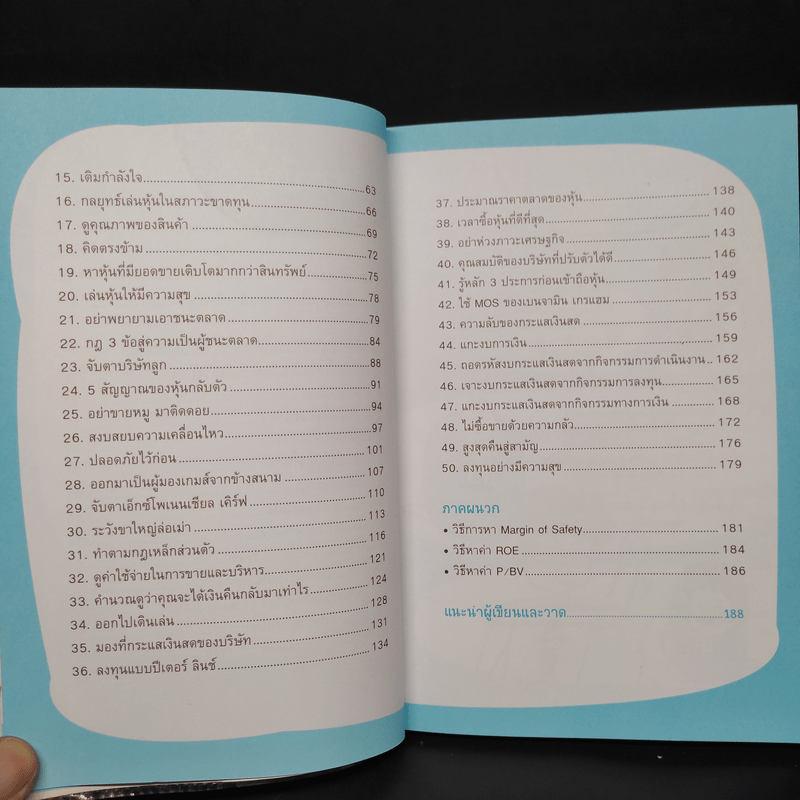 15. เติมกำลังใจ........63
16. กลยุทธ์เล่นหุ้นในสภาวะขาดทุน........66
17. ดูคุณภาพของสินค้า........69
18. คิดตรงข้าม........72
19. หาหุ้นที่มียอดขายเติบโตมากกว่าสินทรัพย์........75
20. เล่นหุ้นให้มีความสุข........78
21. อย่าพยายามเอาชนะตลาด........79
22. กฎ 3 ข้อสู่ความเป็นผู้ชนะตลาด........84
23. จับตาบริษัทลูก........88
24. 5 สัญญาณของหุ้นกลับตัว........91
25. อย่าขายหมู มาติดดอย........94
26. สงบสยบความเคลื่อนไหว........97
27. ปลอดภัยไว้ก่อน........101
28. ออกมาเป็นผู้มองเกมส์จากข้างสนาม........107
29. จับตาเอ็กซ์โพเนนเชียล เคิร์ฟ........110
30. ระวังขาใหญ่ล่อเม่า........113
31. ทำตามกฎเหล็กส่วนตัว........116
32. ดูค่าใช้จ่ายในการขายและบริหาร........121
33. คำนวณดูว่าคุณจะได้เงินคืนกลับมาเท่าไร........124
34. ออกไปเดินเล่น........128
35. มองที่กระแสเงินสดของบริษัท........131
36. ลงทุนแบบปีเตอร์ ลินซ์........134
37. ประมาณราคาตลาดของหุ้น........138
38. เวลาซื้อหุ้นที่ดีที่สุด........140
39. อย่าห่วงภาวะเศรษฐกิจ........143
40. คุณสมบัติของบริษัทที่ปรับตัวได้ดี........146
41. รู้หลัก 3 ประการก่อนเข้าถือหุ้น........149
42. ใช้ MOS ของเบนจามิน เกรแฮม........153
43. ความลับของกระแสเงินสด........156
44. แกะงบการเงิน........159
45. ถอดรหัสงบกระแสเงินสดจากกิจกรรมการดำเนินงาน..162
46. เจาะงบกระแสเงินสดจากกิจกรรมการลงทุน........165
47. แกะงบกระแสเงินสดจากกิจกรรมทางการเงิน........168
48. ไม่ซื้อขายด้วยความกลัว........172
49. สูงสุดคืนสู่สามัญ........176
50. ลงทุนอย่างมีความสุข........179
ภาคผนวก
• วิธีการหา Margin of Safety........181
• วิธีหาค่า ROE........184
• วิธีหาค่า P/BV........186
แนะนำผู้เขียนและวาด........188